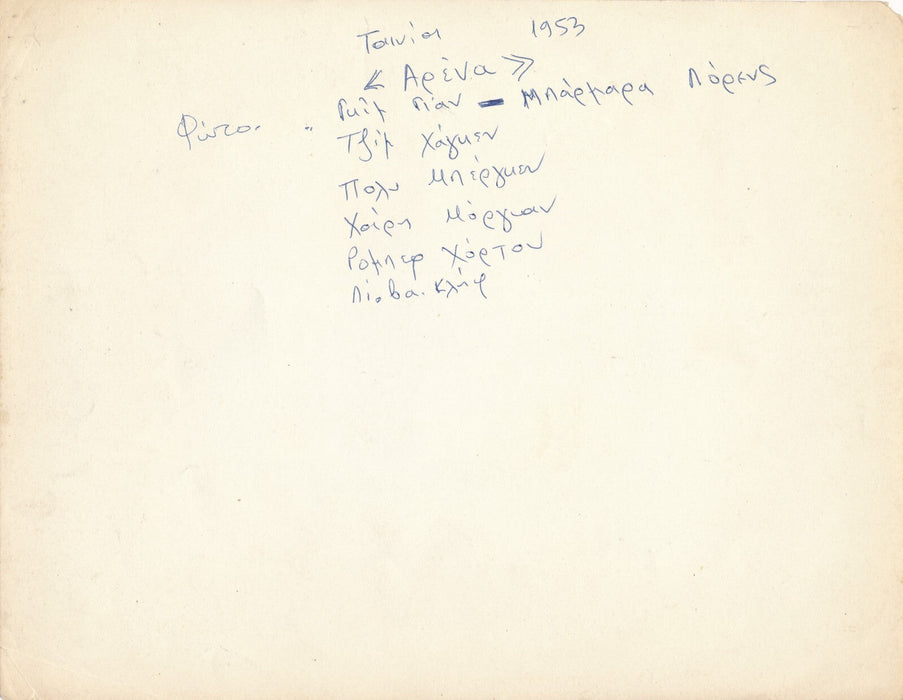 Ταινία 1953
« Αρένα »
Φώτο. .. Γκιγ Γιαν - Μπάρμαρα Λόρενς
Τζίμ Χάγκεν
Πολυ Μπέργκεν
Χαίρη Μόργκαν
Ρομπερ Χόρτον
Λι. Βα. Κλήφ